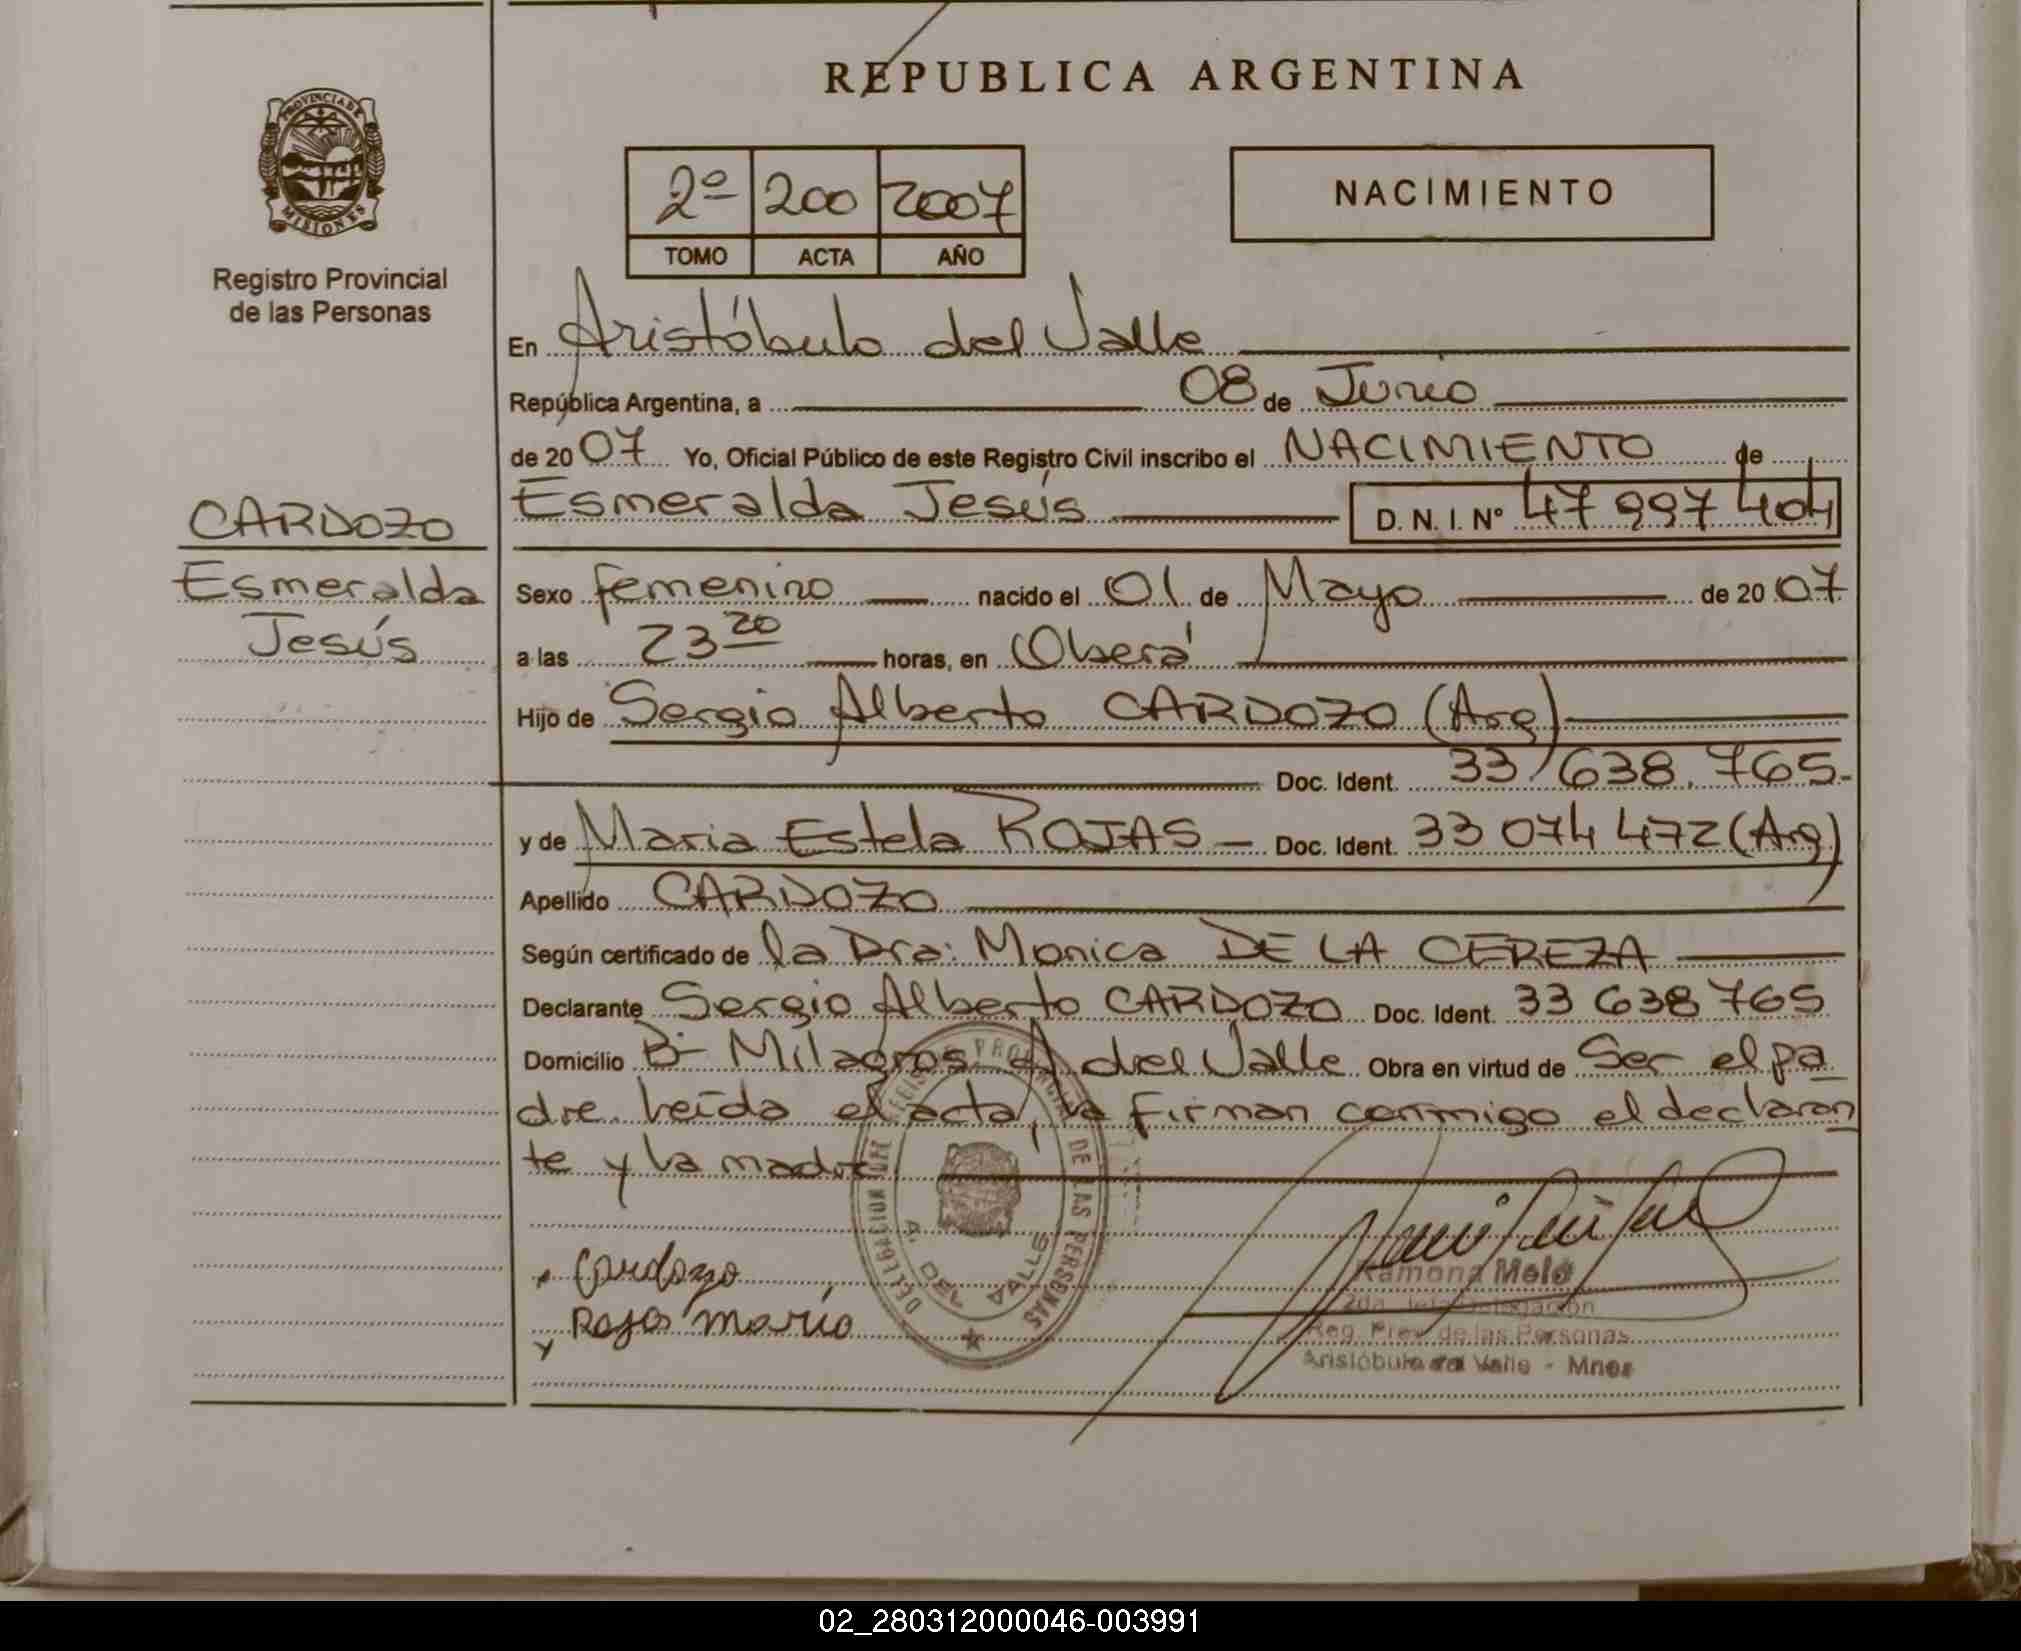 REPUBLICA ARGENTINA
PROVINCIA DE
MISIONES
Registro Provincial
de las Personas
2º 200 2007
TOMO ACTA AÑO
NACIMIENTO
En Aristóbulo del Valle
República Argentina, a 08 de Junio
de 2007 Yo, Oficial Público de este Registro Civil inscribo el NACIMIENTO de
Esmeralda Jesús D. N. I. Nº 47 997 404
CARDOZO
Esmeralda
Jesús
Sexo femenino nacido el 01 de Mayo de 2007
a las 23 20 horas, en Oberá
Hijo de Sergio Alberto CARDOZO (Arg)
Doc. Ident. 33/638.765.-
y de Maria Estela ROJAS - Doc. Ident. 33 074 472 (Arg)
Apellido CARDOZO
Según certificado de la Dra: Monica DE LA CEREZA
Declarante Sergio Alberto CARDOZO Doc. Ident. 33 638 765
Domicilio Bº Milagros A del Valle Obra en virtud de Ser el pa
dre. Leída el acta, la firman conmigo el declaran
te y la madre
DE LAS PERSONAS
A. DEL VALLE
Cardozo
Rojas maría
Ramona Melo
2da. Jefa Delegación
Reg. Prov. de las Personas
Aristóbulo del Valle - Mnes
02_280312000046-003991